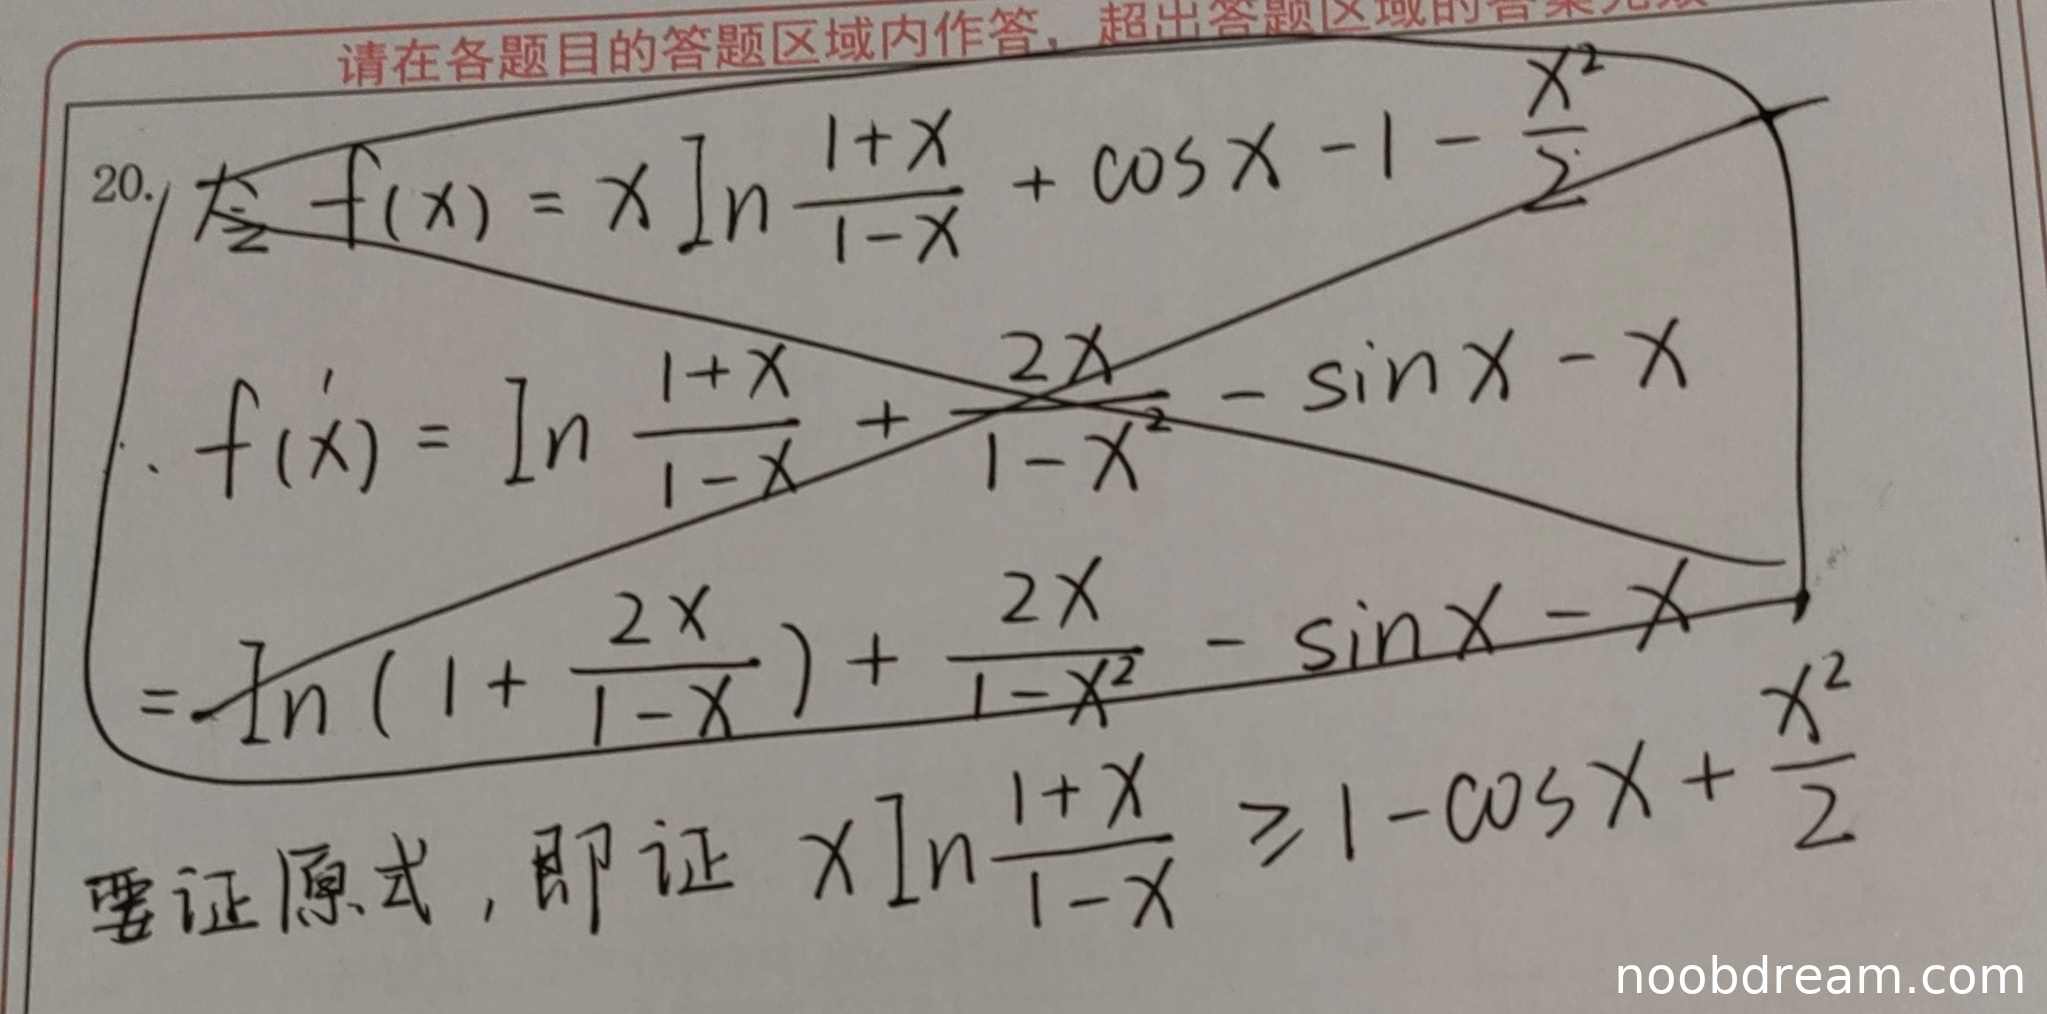 请在各题目的答题区域内作答，超出答题区域的答案无效
20. 左 f(x) = x ln \frac{1+x}{1-x} + cosx - 1 - \frac{x^2}{2}
f'(x) = ln \frac{1+x}{1-x} + \frac{2x}{1-x^2} - sinx - x
= ln(1 + \frac{2x}{1-x}) + \frac{2x}{1-x^2} - sinx - x
要证原式, 即证 x ln \frac{1+x}{1-x} ≥ 1 - cosx + \frac{x^2}{2}
noobdream.com